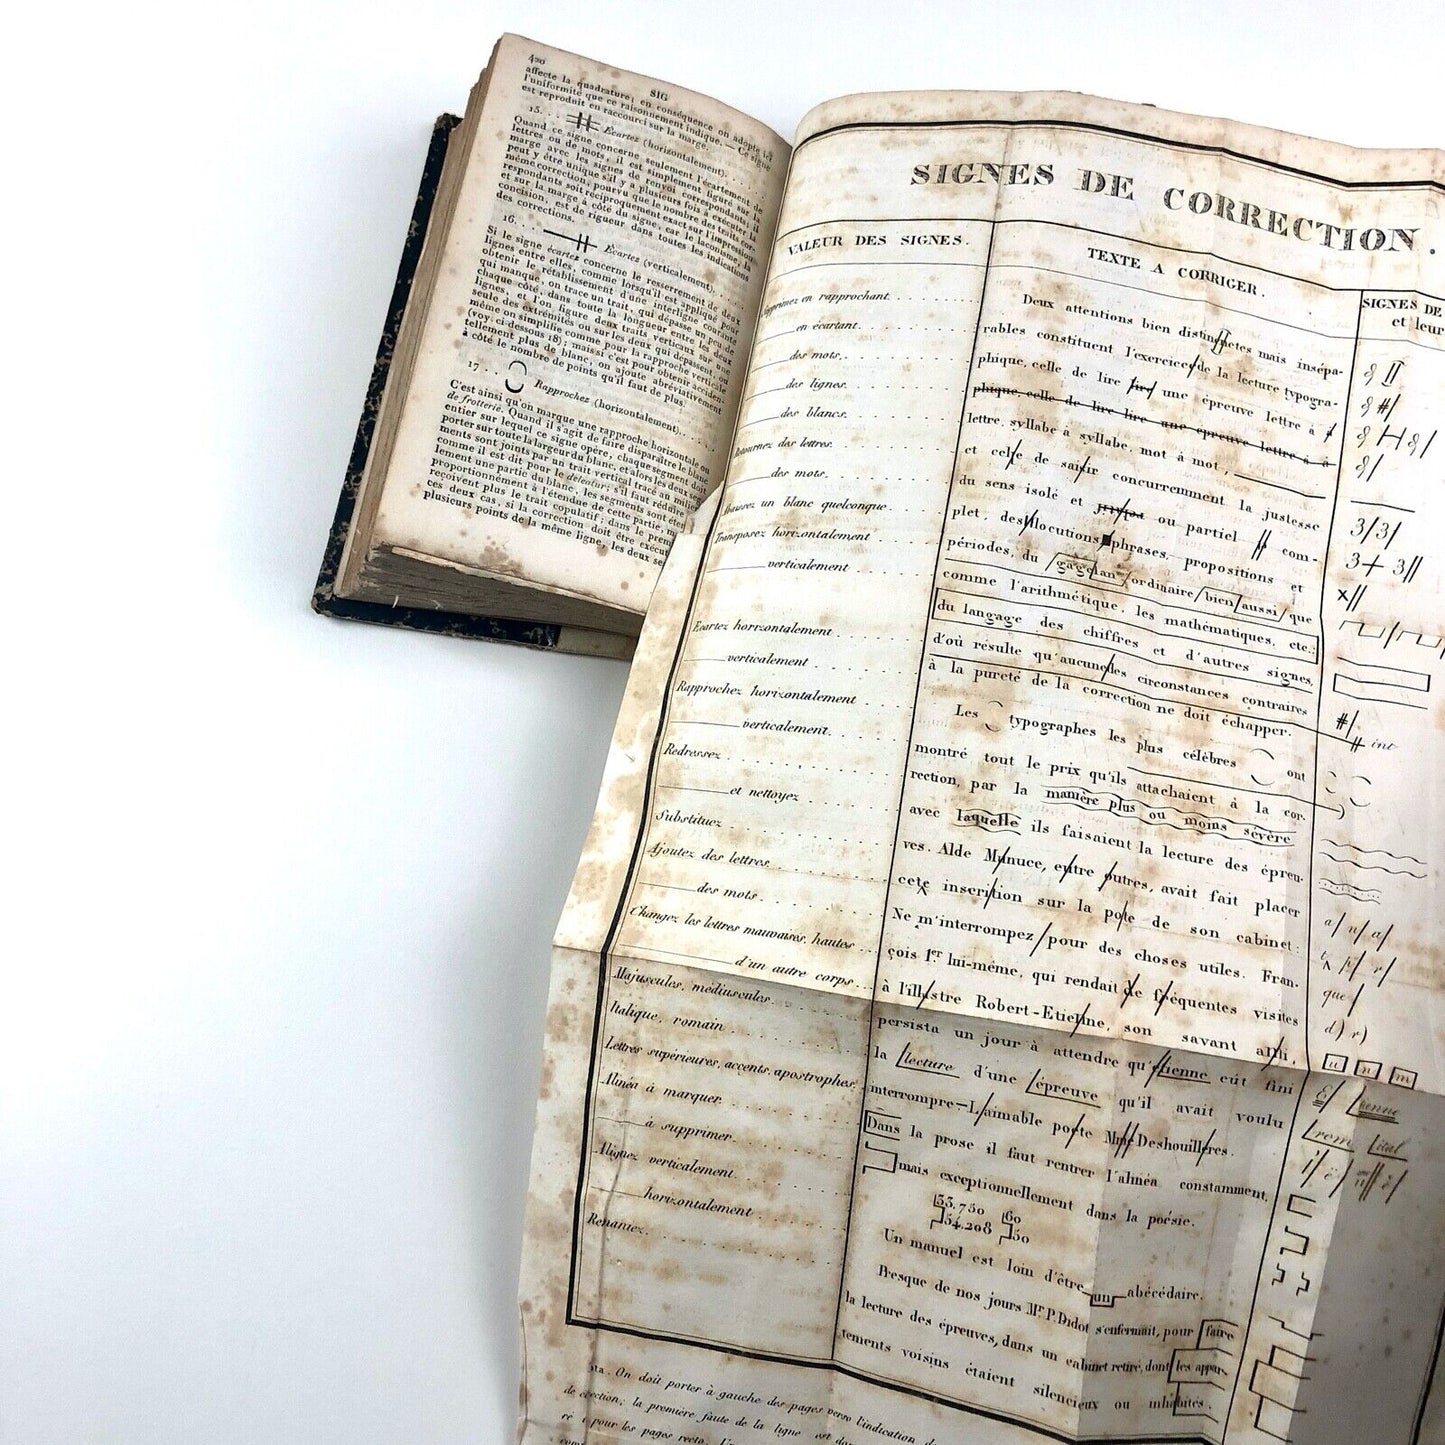 420
SIG
affecte la quadrature; en conséquence on adopte ici
l'uniformité que ce raisonnement indique. — Ce signe
est reproduit en raccourci sur la marge.
15. . . Écartez (horizontalement). . . . . .
Quand ce signe concerne seulement l'écartement de
lettres ou de mots, il est simplement figuré sur la
marge avec les signes de renvoi correspondants; il
peut y être unique s'il y a plusieurs fois à exécuter la
même correction, pourvu que le nombre des traits cor-
respondants soit réciproquement exact sur l'impression
et sur la marge à côté du signe, car le laconisme, la
concision, est de rigueur dans toutes les indications
des corrections.
16. . . . Écartez (verticalement). . . .
Si le signe écartez concerne le resserrement de deux
lignes entre elles, comme lorsqu'il est appliqué pour
obtenir le rétablissement d'une interligne courante
qui manque, on trace un trait, qui dépasse un peu de
chaque côté, dans toute la longueur entre les deux
lignes, et l'on figure deux traits verticaux sur une
seule des extrémités ou sur les deux qui dépassent, ou
même on simplifie comme pour la rapproche verticale
(voy. ci-dessous 18); mais si c'est pour obtenir acciden-
tellement plus de blanc, on ajoute abréviativement
à côté le nombre de points qu'il faut de plus.
17 . . Rapprochez (horizontalement). . . .
C'est ainsi qu'on marque une rapproche horizontale ou
de frotterie. Quand il s'agit de faire disparaître le blanc
entier sur lequel ce signe opère, chaque segment doit
porter sur toute la largeur du blanc, et alors les deux seg-
ments sont joints par un trait vertical tracé au milieu
comme il est dit pour le deleatur; s'il faut réduire
lement une partie du blanc, les segments sont éten
proportionnément à l'étendue de cette partie, m
reçoivent plus le trait copulatif; dans le prem
ces deux cas, si la correction doit être exécut
plusieurs points de la même ligne, les deux se
SIGNES DE CORRECTION.
VALEUR DES SIGNES.
TEXTE A CORRIGER.
SIGNES DE
et leur
Supprimez en rapprochant.
en écartant
des mots.
des lignes.
des blancs.
Retournez des lettres.
des mots.
Baissez un blanc quelconque
Transposez horizontalement
verticalement
Écartez horizontalement
verticalement
Rapprochez horizontalement
verticalement.
Redressez
et nettoyez
Substituez
Ajoutez des lettres.
des mots.
Changez les lettres mauvaises, hautes
d'un autre corps
Majuscules, médiuscules.
Italique, romain
Lettres supérieures, accents, apostrophes.
Alinéa à marquer.
à supprimer.
Alignez verticalement.
horizontalement
Renantez.
Deux attentions bien distinctes mais insépa-
rables constituent l'exercice de la lecture typogra-
phique, celle de lire lire une épreuve lettre à
phique, celle de lire lire une épreuve lettre à à
lettre, syllabe à syllabe, mot à mot,
et celle de saisir concurremment la justesse
du sens isolé et ou partiel com-
plet, des locutions phrases, propositions et
périodes, du gagelan ordinaire bien aussi que
comme l'arithmétique, les mathématiques, etc.;
du langage des chiffres et d'autres signes,
d'où résulte qu'aucune des circonstances contraires
à la pureté de la correction ne doit échapper.
Les typographes les plus célèbres ont
montré tout le prix qu'ils attachaient à la cor-
rection, par la manière plus ou moins sévère
avec laquelle ils faisaient la lecture des épreu-
ves. Alde Munuce, entre outres, avait fait placer
cete inscrition sur la pote de son cabinet:
Ne m'interrompez pour des choses utiles. Fran-
çois 1er lui-même, qui rendait de fréquentes visites
à l'illustre Robert-Etienne, son savant ami,
persista un jour à attendre qu'étienne eût fini
la lecture d'une épreuve qu'il avait voulu
interrompre.—L'aimable poète Mme Deshouillères.
Dans la prose il faut rentrer l'alinéa constamment,
mais exceptionnellement dans la poésie.
33,750 60
54,208 50
Un manuel est loin d'être un abécédaire.
Presque de nos jours Mr. P. Didot s'enfermait, pour faire
la lecture des épreuves, dans un cabinet retiré, dont les appar-
tements voisins étaient silencieux ou inhabités.
3/3/
3+ 3//
#/
# int
a/ n/ a/
que/
d) r)
u n m
E/ tienne
rom ital
ta. On doit porter à gauche des pages verso l'indication d
de ection; la première faute de la ligne est don
ré pour les pages recto.